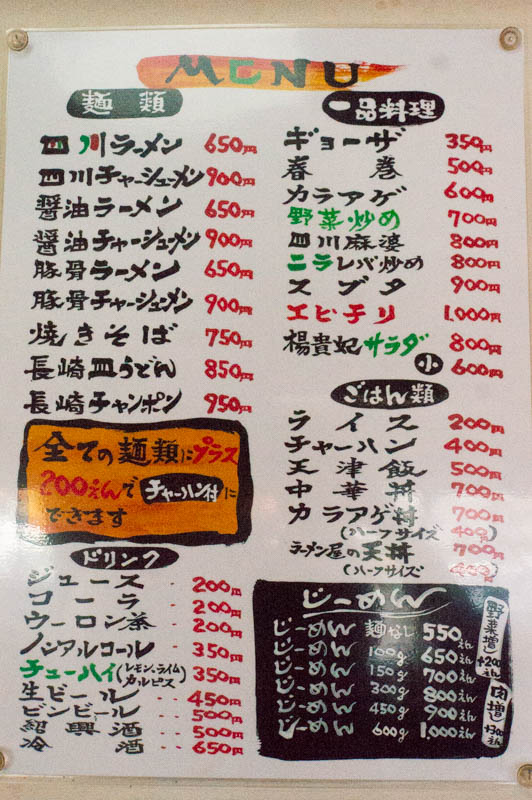 MENU
麺類
四川ラーメン 650円
四川チャーシューメン 900円
醤油ラーメン 650円
醤油チャーシューメン 900円
豚骨ラーメン 650円
豚骨チャーシューメン 900円
焼きそば 750円
長崎皿うどん 850円
長崎チャンポン 950円
全ての麺類にプラス
200えんでチャーハン付に
できます
ドリンク
ジュース 200円
コーラ 200円
ウーロン茶 200円
ノンアルコール 350円
チューハイ(レモン、ライム カルピス) 350円
生ビール 450円
ビンビール 500円
紹興酒 500円
冷酒 650円
一品料理
ギョーザ 350円
春巻 500円
カラアゲ 600円
野菜炒め 700円
四川麻婆 800円
ニラレバ炒め 800円
スブタ 900円
エビチリ 1,000円
楊貴妃サラダ 800円
小 600円
ごはん類
ライス 200円
チャーハン 400円
天津飯 500円
中華丼 700円
カラアゲ丼 700円
(ハーフサイズ 400円)
ラーメン屋の天丼 700円
(ハーフサイズ 400円)
じーめん
じーめん 麺なし 550えん
じーめん 100g 650えん
じーめん 150g 700えん
じーめん 300g 800えん
じーめん 450g 900えん
じーめん 600g 1,000えん
野菜増し+200えん
肉増し+300えん